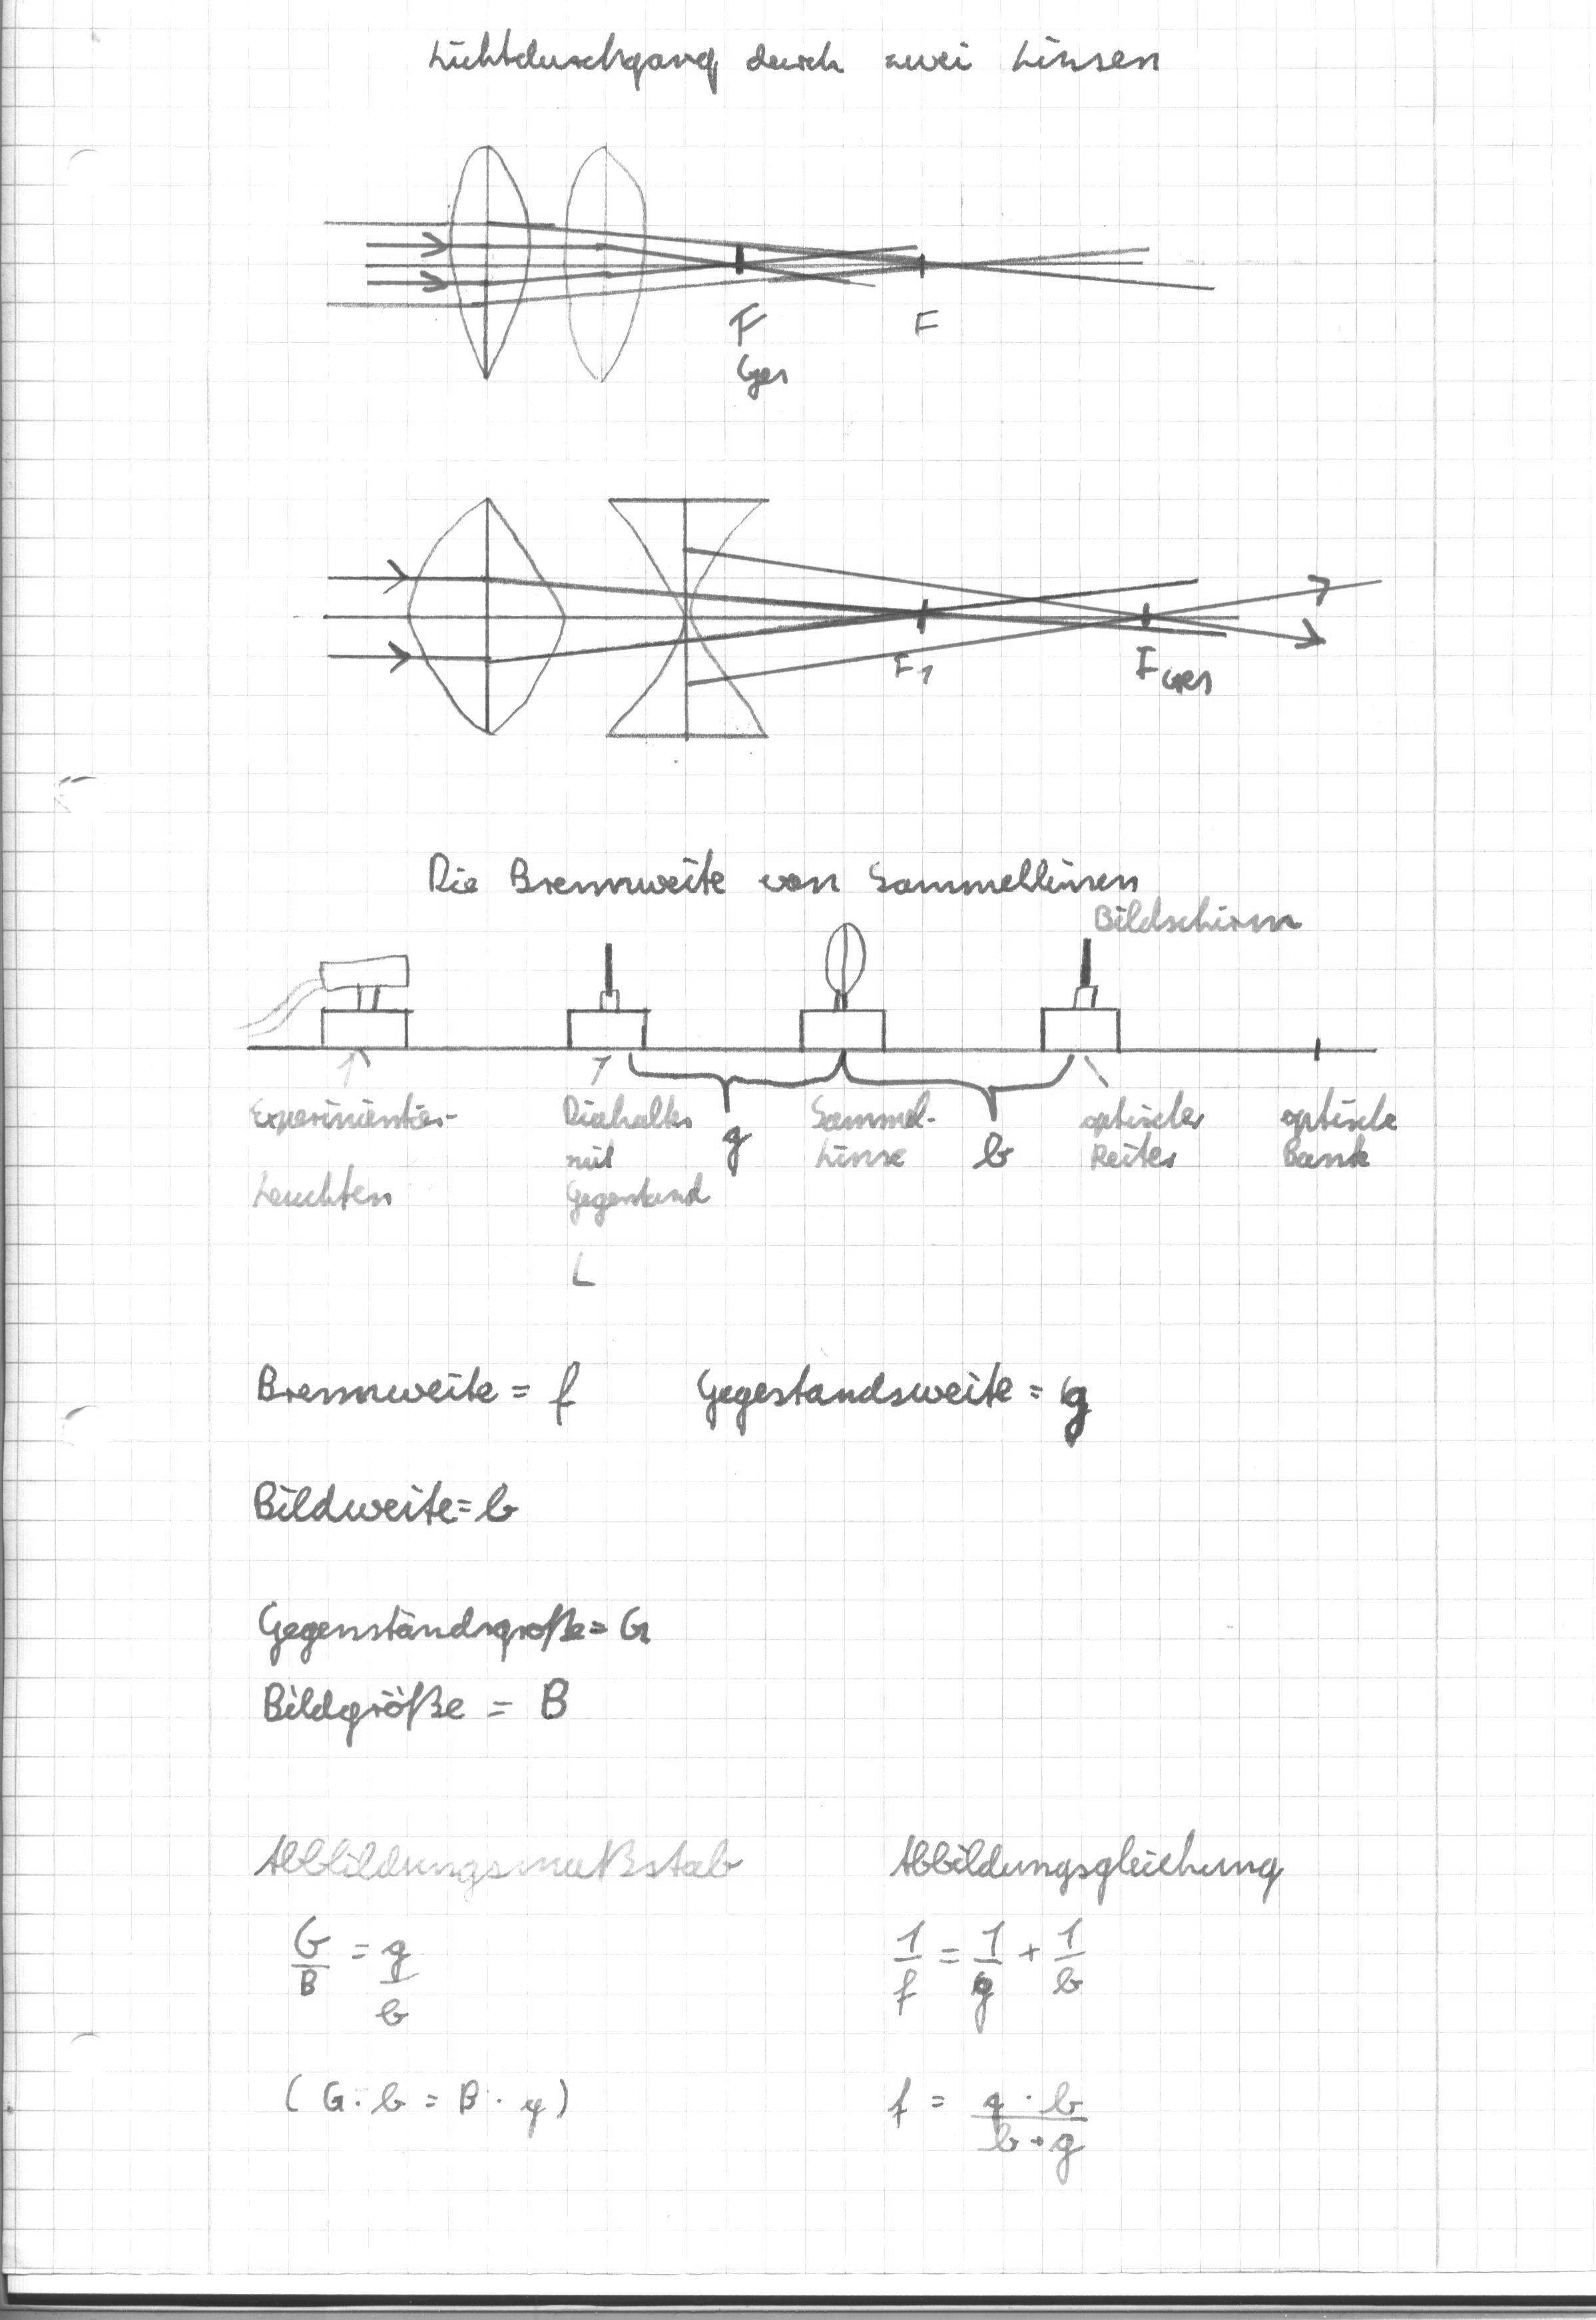 Lichtduschgang durch zwei Linsen
F
Ges
F
F1
FGes
Die Brennweite von Sammellinsen
Bildschirm
Experimentier-
Leuchten
Diahalter
mit
Gegenstand
L
g
Sammel-
Linse
b
optischer
Reiter
optische
Bank
Brennweite = f Gegestandsweite = g
Bildweite = b
Gegenständsgroße = G
Bildgröße = B
Abbildungsmaßstab
G/B = g/b
(G · b = B · g)
Abbildungsgleichung
1/f = 1/g + 1/b
f = g · b / b + g